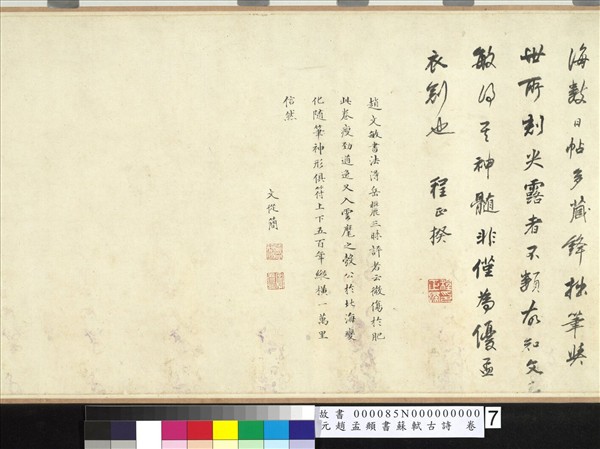 海數日帖多藏鋒拙筆與
世所刻尖露者不類
敏得其神髓非僅為優孟
衣劍也 程正揆
趙文敏書法得岳麓三昧評者少微傷於肥
此卷瘦勁遒逸又入雲麾之彀公於北海變
化隨筆神形俱符上下五百年縱橫一萬里
信然
文從簡
故書 000085N000000000 7
元趙孟頫書蘇軾古詩 卷